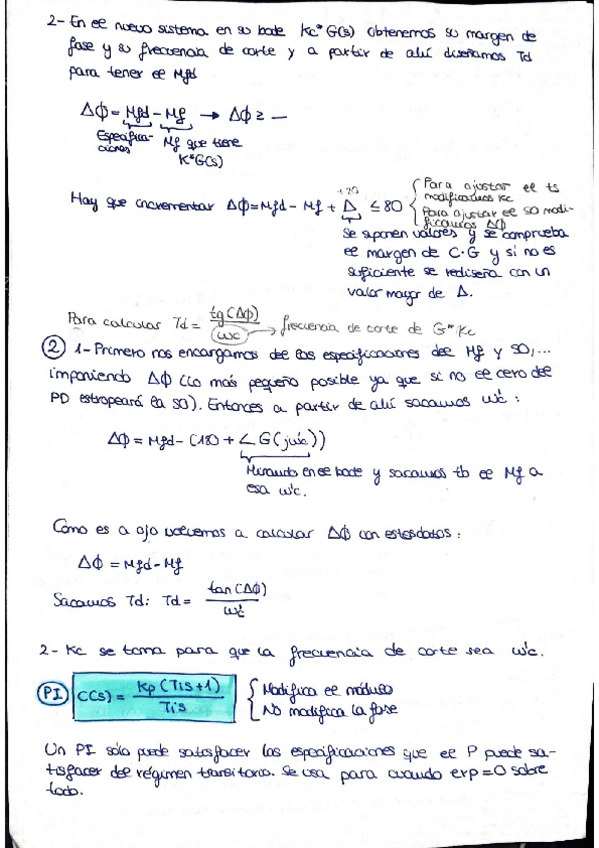 2- En el nuevo sistema en su bode Kc* G(s) obtenemos su margen de
fase y su frecuencia de corte y a partir de ahí diseñamos Td
para tener el Mfd
Δϕ = Mfd - Mf → Δϕ ≥ —
Especifica-
ciones
Mf que tiene
K*G(s)
Hay que incrementar Δϕ = Mfd - Mf + Δ ≤ 80
+20
Para ajustar el ts
modificamos Kc
Para ajustar el SO modi-
ficamos Δϕ
Se suponen valores y se comprueba
el margen de C·G y si no es
suficiente se rediseña con un
valor mayor de Δ.
Para calcular Td = tg(Δϕ) / wc → frecuencia de corte de G*Kc
2 1- Primero nos encargamos de las especificaciones del Mf y SO,...
imponiendo Δϕ (lo más pequeño posible ya que si no el cero del
PD estropeará la SO). Entonces a partir de ahí sacamos w'c :
Δϕ = Mfd - (180 + ∠G(jw'c))
Mirando en el bode y sacamos tb el Mf a
esa w'c.
Como es a ojo volvemos a calcular Δϕ con estos datos :
Δϕ = Mfd - Mf
Sacamos Td: Td = tan(Δϕ) / w'c
2- Kc se toma para que la frecuencia de corte sea w'c.
PI C(s) = Kp (Tis+1) / Tis
Modifica el módulo
No modifica la fase
Un PI sólo puede satisfacer las especificaciones que el P puede sa-
tisfacer del régimen transitorio. Se usa para cuando erp = 0 sobre
todo.